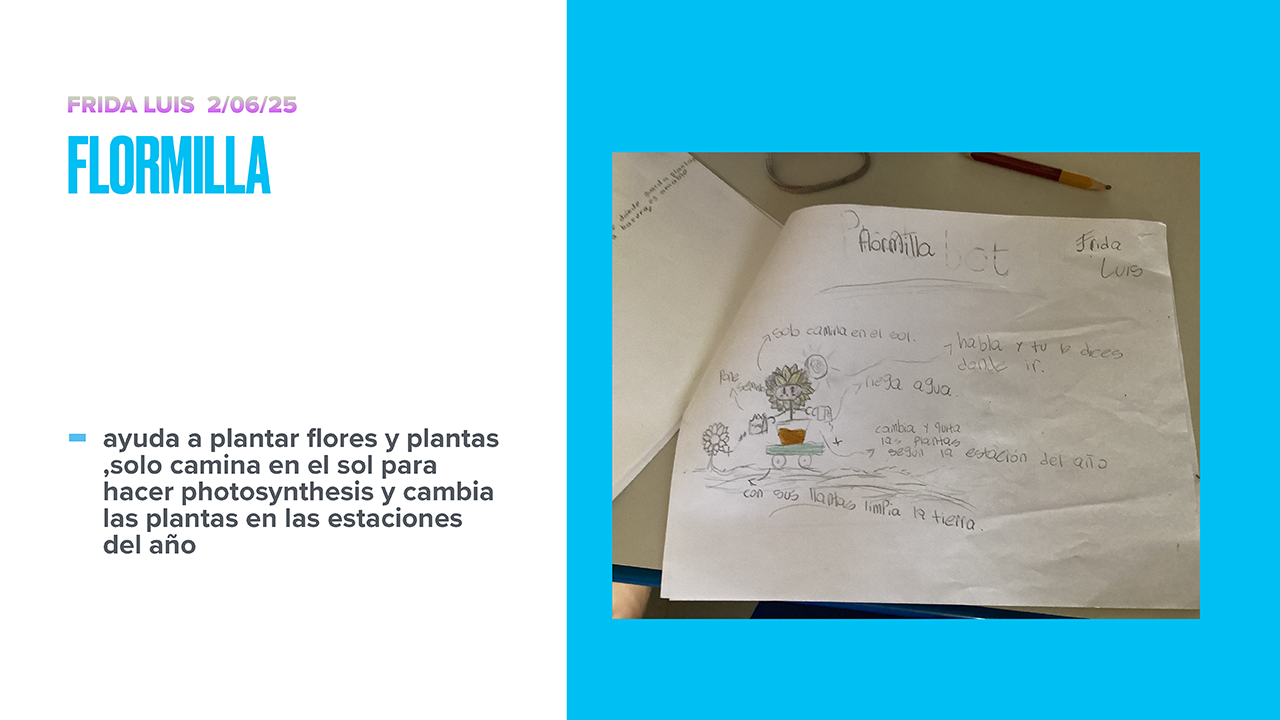 FRIDA LUIS 2/06/25
FLORMILLA
ayuda a plantar flores y plantas
,solo camina en el sol para
hacer photosynthesis y cambia
las plantas en las estaciones
del año
Flormilla bot
Frida
Luis
solo camina en el sol.
habla y tu le dices
donde ir.
Pone
riega agua.
cambia y quita
las plantas
según la estación del año
con sus llantas limpia la tierra.